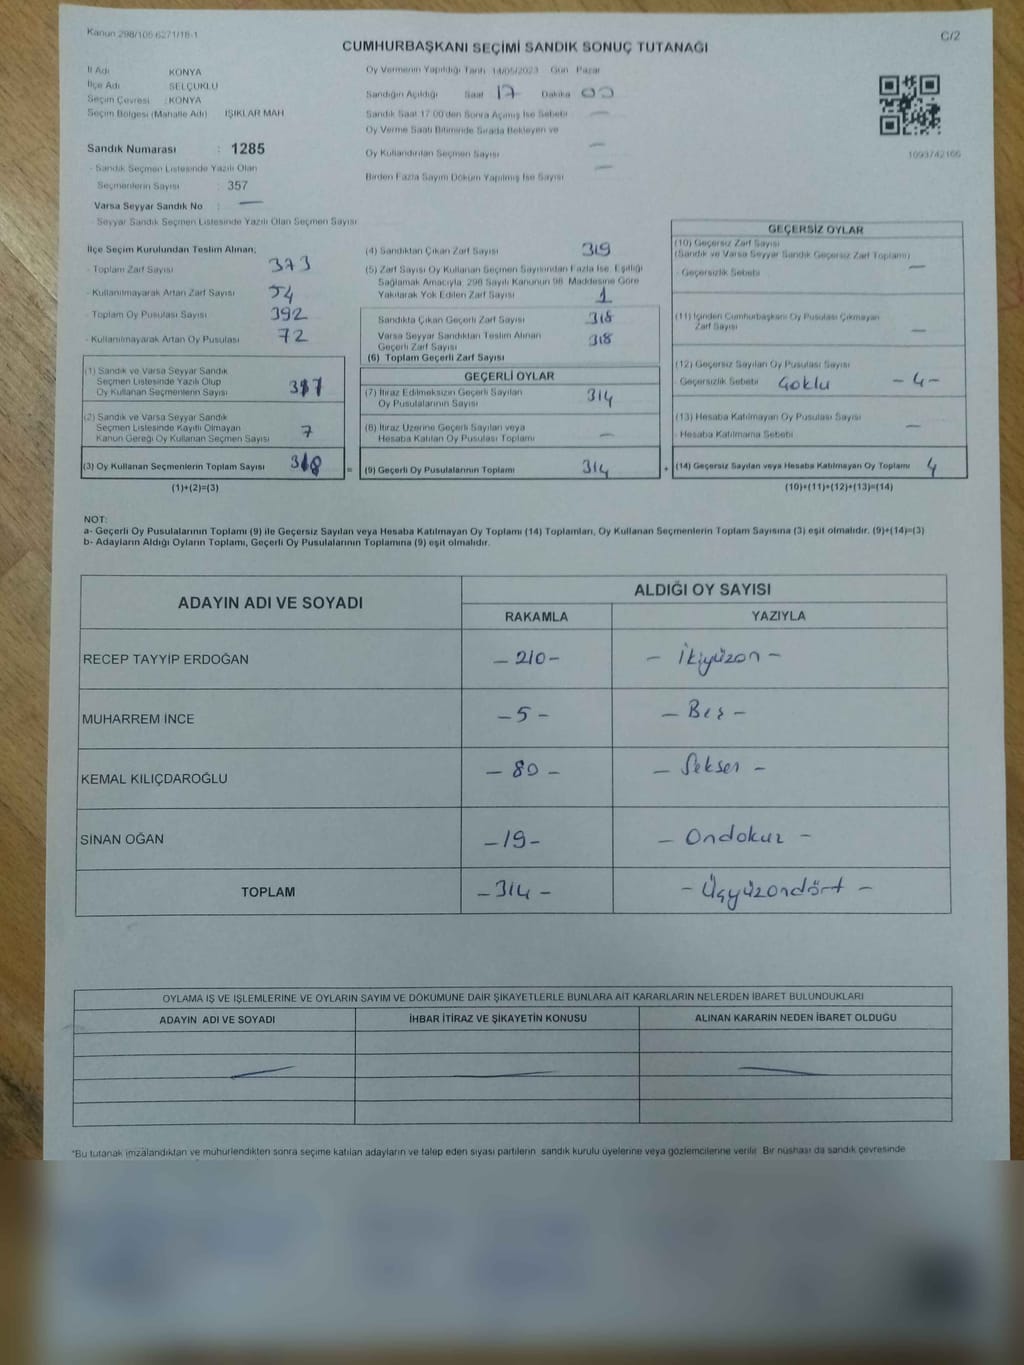 Kanun 298/106 6271/18-1
C/2
CUMHURBAŞKANI SEÇİMİ SANDIK SONUÇ TUTANAĞI
İl Adı KONYA
İlçe Adı SELÇUKLU
Seçim Çevresi : KONYA
Seçim Bölgesi (Mahalle Adı) IŞIKLAR MAH
Sandık Numarası : 1285
- Sandık Seçmen Listesinde Yazılı Olan
Seçmenlerin Sayısı : 357
Varsa Seyyar Sandık No : —
- Seyyar Sandık Seçmen Listesinde Yazılı Olan Seçmen Sayısı
Oy Vermenin Yapıldığı Tarih 14/05/2023 Gün Pazar
Sandığın Açıldığı Saat 17 Dakika 00
Sandık Saat 17 00'den Sonra Açılmış İse Sebebi —
Oy Verme Saati Bitiminde Sırada Bekleyen ve
Oy Kullandırılan Seçmen Sayısı —
Birden Fazla Sayım Döküm Yapılmış İse Sayısı —
1093742166
İlçe Seçim Kurulundan Teslim Alınan;
- Toplam Zarf Sayısı 373
- Kullanılmayarak Artan Zarf Sayısı 54
- Toplam Oy Pusulası Sayısı 392
- Kullanılmayarak Artan Oy Pusulası 72
(1) Sandık ve Varsa Seyyar Sandık
Seçmen Listesinde Yazılı Olup
Oy Kullanan Seçmenlerin Sayısı
(2) Sandık ve Varsa Seyyar Sandık
Seçmen Listesinde Kayıtlı Olmayan
Kanun Gereği Oy Kullanan Seçmen Sayısı 7
(3) Oy Kullanan Seçmenlerin Toplam Sayısı 318
(1)+(2)=(3)
(4) Sandıktan Çıkan Zarf Sayısı 319
(5) Zarf Sayısı Oy Kullanan Seçmen Sayısından Fazla İse, Eşitliği
Sağlamak Amacıyla, 298 Sayılı Kanunun 98 Maddesine Göre
Yakılarak Yok Edilen Zarf Sayısı 1
Sandıkta Çıkan Geçerli Zarf Sayısı 318
Varsa Seyyar Sandıktan Teslim Alınan
Geçerli Zarf Sayısı 318
(6) Toplam Geçerli Zarf Sayısı
GEÇERLİ OYLAR
(7) İtiraz Edilmeksizin Geçerli Sayılan
Oy Pusulalarının Sayısı 314
(8) İtiraz Üzerine Geçerli Sayılan veya
Hesaba Katılan Oy Pusulası Toplamı —
= (9) Geçerli Oy Pusulalarının Toplamı 314 +
GEÇERSİZ OYLAR
(10) Geçersiz Zarf Sayısı
(Sandık ve Varsa Seyyar Sandık Geçersiz Zarf Toplamı)
- Geçersizlik Sebebi —
(11) İçinden Cumhurbaşkanı Oy Pusulası Çıkmayan
Zarf Sayısı —
(12) Geçersiz Sayılan Oy Pusulası Sayısı
- Geçersizlik Sebebi Çoklu -4-
(13) Hesaba Katılmayan Oy Pusulası Sayısı
- Hesaba Katılmama Sebebi —
(14) Geçersiz Sayılan veya Hesaba Katılmayan Oy Toplamı 4
(10)+(11)+(12)+(13)=(14)
NOT:
a- Geçerli Oy Pusulalarının Toplamı (9) ile Geçersiz Sayılan veya Hesaba Katılmayan Oy Toplamı (14) Toplamları, Oy Kullanan Seçmenlerin Toplam Sayısına (3) eşit olmalıdır. (9)+(14)=(3)
b- Adayların Aldığı Oyların Toplamı, Geçerli Oy Pusulalarının Toplamına (9) eşit olmalıdır.
ADAYIN ADI VE SOYADI
ALDIĞI OY SAYISI
RAKAMLA YAZIYLA
RECEP TAYYİP ERDOĞAN -210- - İkiyüzon -
MUHARREM İNCE -5- - Beş -
KEMAL KILIÇDAROĞLU - 80 - - Seksen -
SİNAN OĞAN -19- - Ondokuz -
TOPLAM -314- - Üçyüzondört -
OYLAMA İŞ VE İŞLEMLERİNE VE OYLARIN SAYIM VE DÖKÜMÜNE DAİR ŞİKAYETLERLE BUNLARA AİT KARARLARIN NELERDEN İBARET BULUNDUKLARI
ADAYIN ADI VE SOYADI İHBAR İTİRAZ VE ŞİKAYETİN KONUSU ALINAN KARARIN NEDEN İBARET OLDUĞU
*Bu tutanak imzalandıktan ve mühürlendikten sonra seçime katılan adayların ve talep eden siyasi partilerin sandık kurulu üyelerine veya gözlemcilerine verilir. Bir nüshası da sandık çevresinde